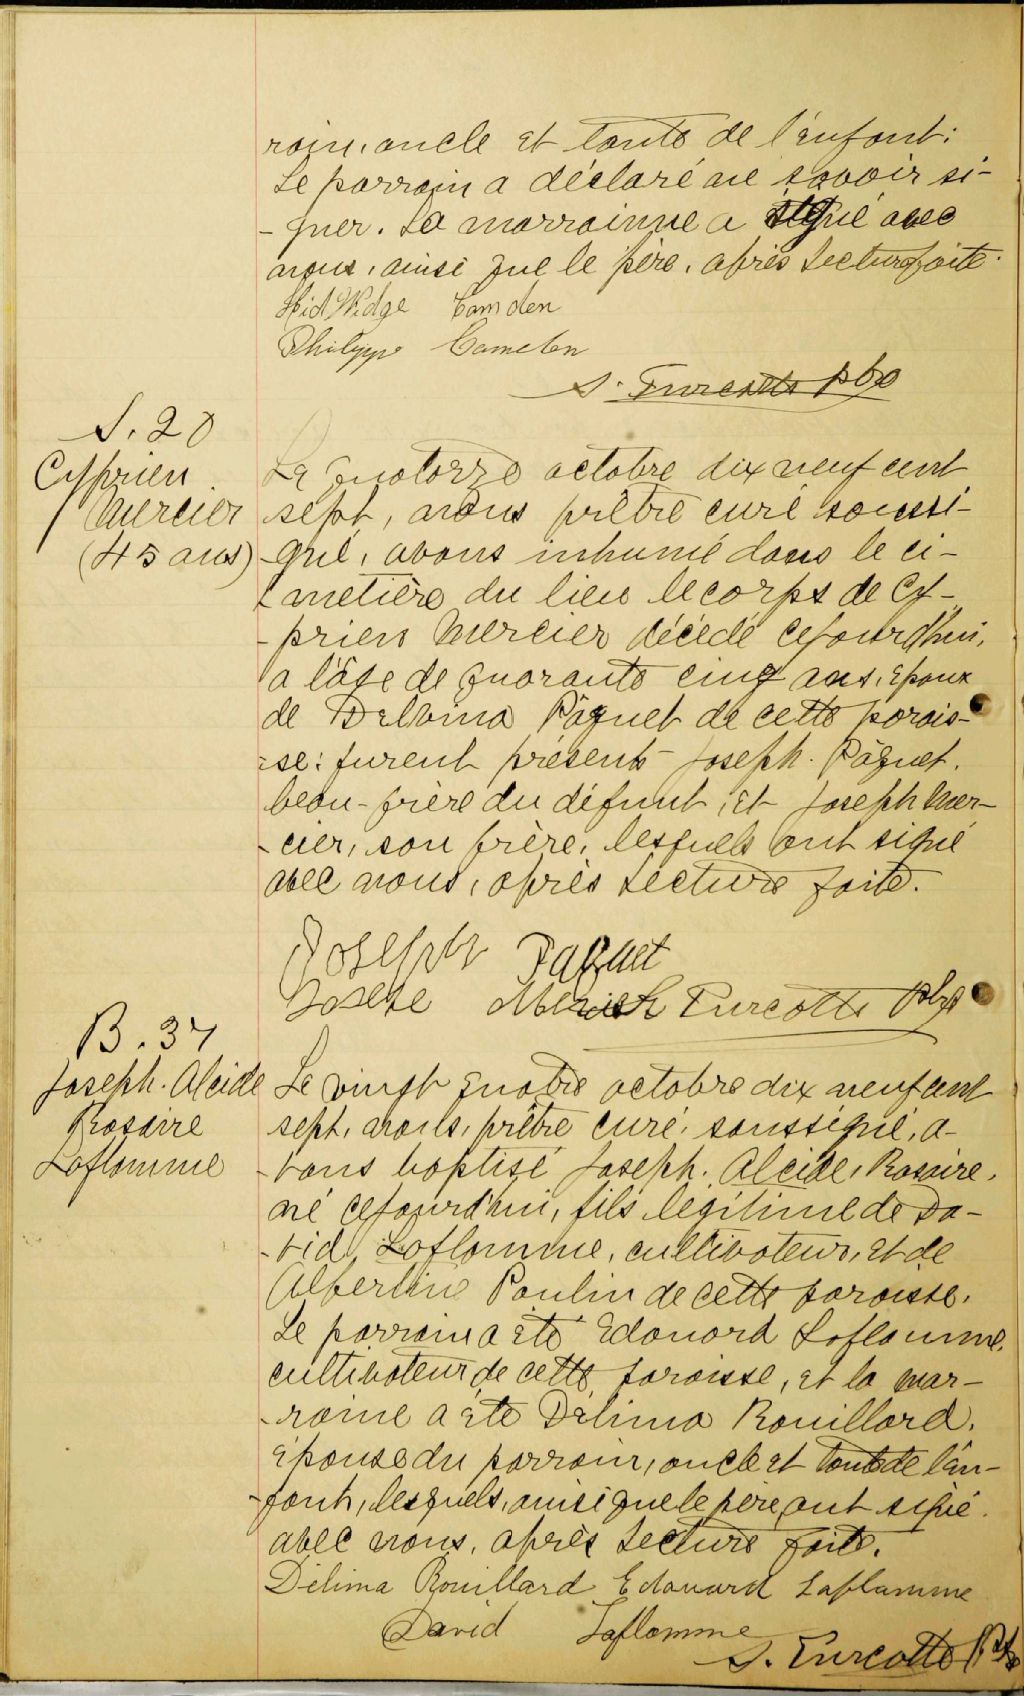 rain, oncle et tante de l'enfant:
Le parrain a déclaré ne savoir si-
-gner. La marrainne a signé avec
nous, ainsi que le père, après lecture faite.
Hidwidge Camden
Philippe Camden
S. Turcotte ptre
S. 20
Cyprien
Mercier
(45 ans)
Le quatorze octobre dix neuf cent
sept, nous prêtre curé soussi-
-gné, avons inhumé dans le ci-
-metière du lieu le corps de Cy-
-prien Mercier décédé cejourd'hui,
a l'âge de quarante cinq ans, époux
de Delvina Pâquet de cette parois-
-se: furent présents Joseph Pâquet,
beau-frère du défunt, et Joseph Mer-
-cier, son frère, lesquels ont signé
avec nous, après lecture faite.
Joseph Paquet
Turcotte ptre
B. 37
Joseph. Alcide
Rosaire
Laflamme
Le vingt quatre octobre dix neuf cent
sept, nous, prêtre curé, soussigné, a-
-vons baptisé Joseph. Alcide, Rosaire,
né cejourd'hui, fils légitime de Da-
-vid, Laflamme, cultivateur, et de
Albertine Poulin de cette paroisse.
Le parrain a été Edouard Laflamme,
cultivateur de cette paroisse, et la mar-
-raine a été Délima Rouillard,
épouse du parrain, oncle et tante de l'en-
-fant, lesquels, ainsi que le père, ont signé
avec nous, après lecture faite.
Délima Rouillard Edouard Laflamme
David Laflamme
S. Turcotte Ptre